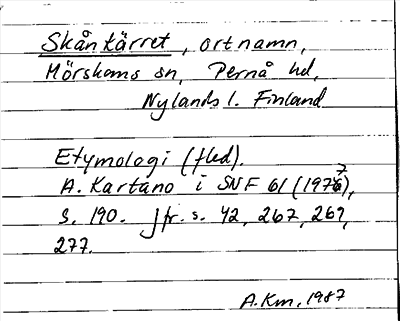 Skånkärret, ortnamn,
Mörskoms sn, Pernå hd,
Nylands l. Finland
Etymologi (fled).
A. Kartano i SNF 61 (1977),
s. 190. Jfr. s. 42, 267, 269,
277.
A.Km, 1987